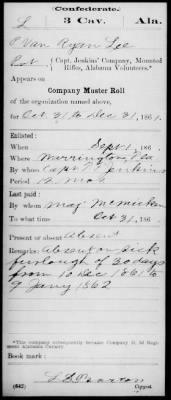 (Confederate.)
L 3 Cav. Ala.
P Van Ryan Lee
Pvt { Capt. Jenkins' Company, Mounted
Rifles, Alabama Volunteers.*
Appears on
Company Muster Roll
of the organization named above,
for Oct 31 to Dec 31, 1861.
Enlisted:
When Sept 1, 186 .
Where
By whom Capt T F Jenkins
Period 12 mos
Last paid:
By whom Maj McMicken
To what time Oct 31, 186 .
Present or absent Absent
Remarks: Absent on sick
furlough of 30 days
from 10 Dec 1861 to
9 Jany 1862
*This company subsequently became Company
Book mark:
(642) Copyist.